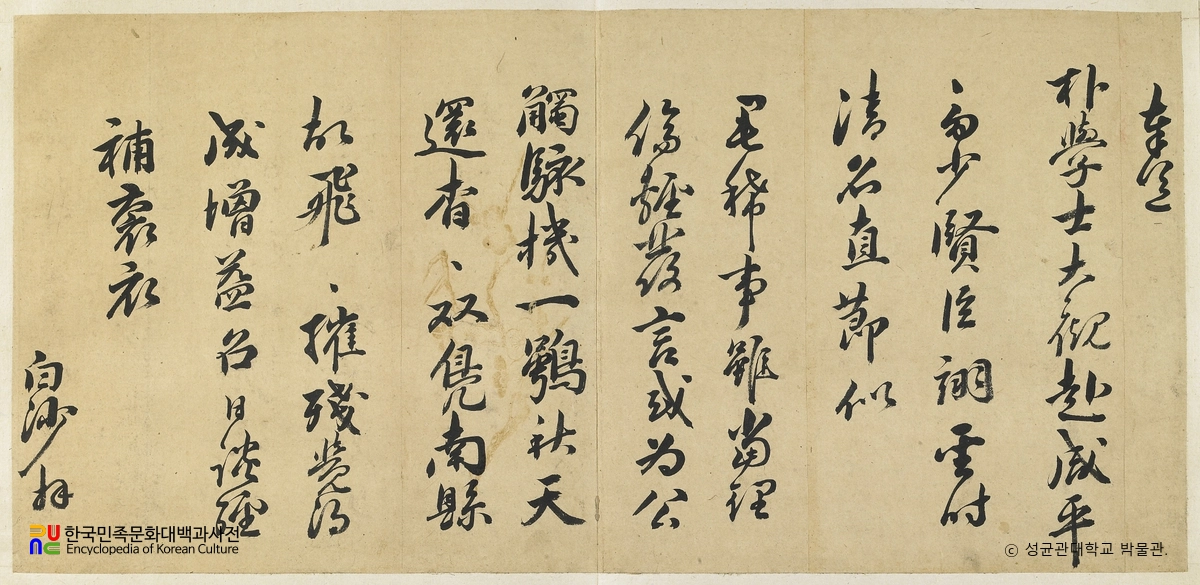 奉送
朴學士大觀赴咸平
少賢臣詡 時
清名直節似
毛稀事雖當理
傷輕發言或為公
觸駭機一鶚秋天
還有 双鳧南縣
故飛 摧殘覺得
成增益 召日談經
補袞衣
白沙拜
한국민족문화대백과사전
Encyclopedia of Korean Culture
© 성균관대학교 박물관.